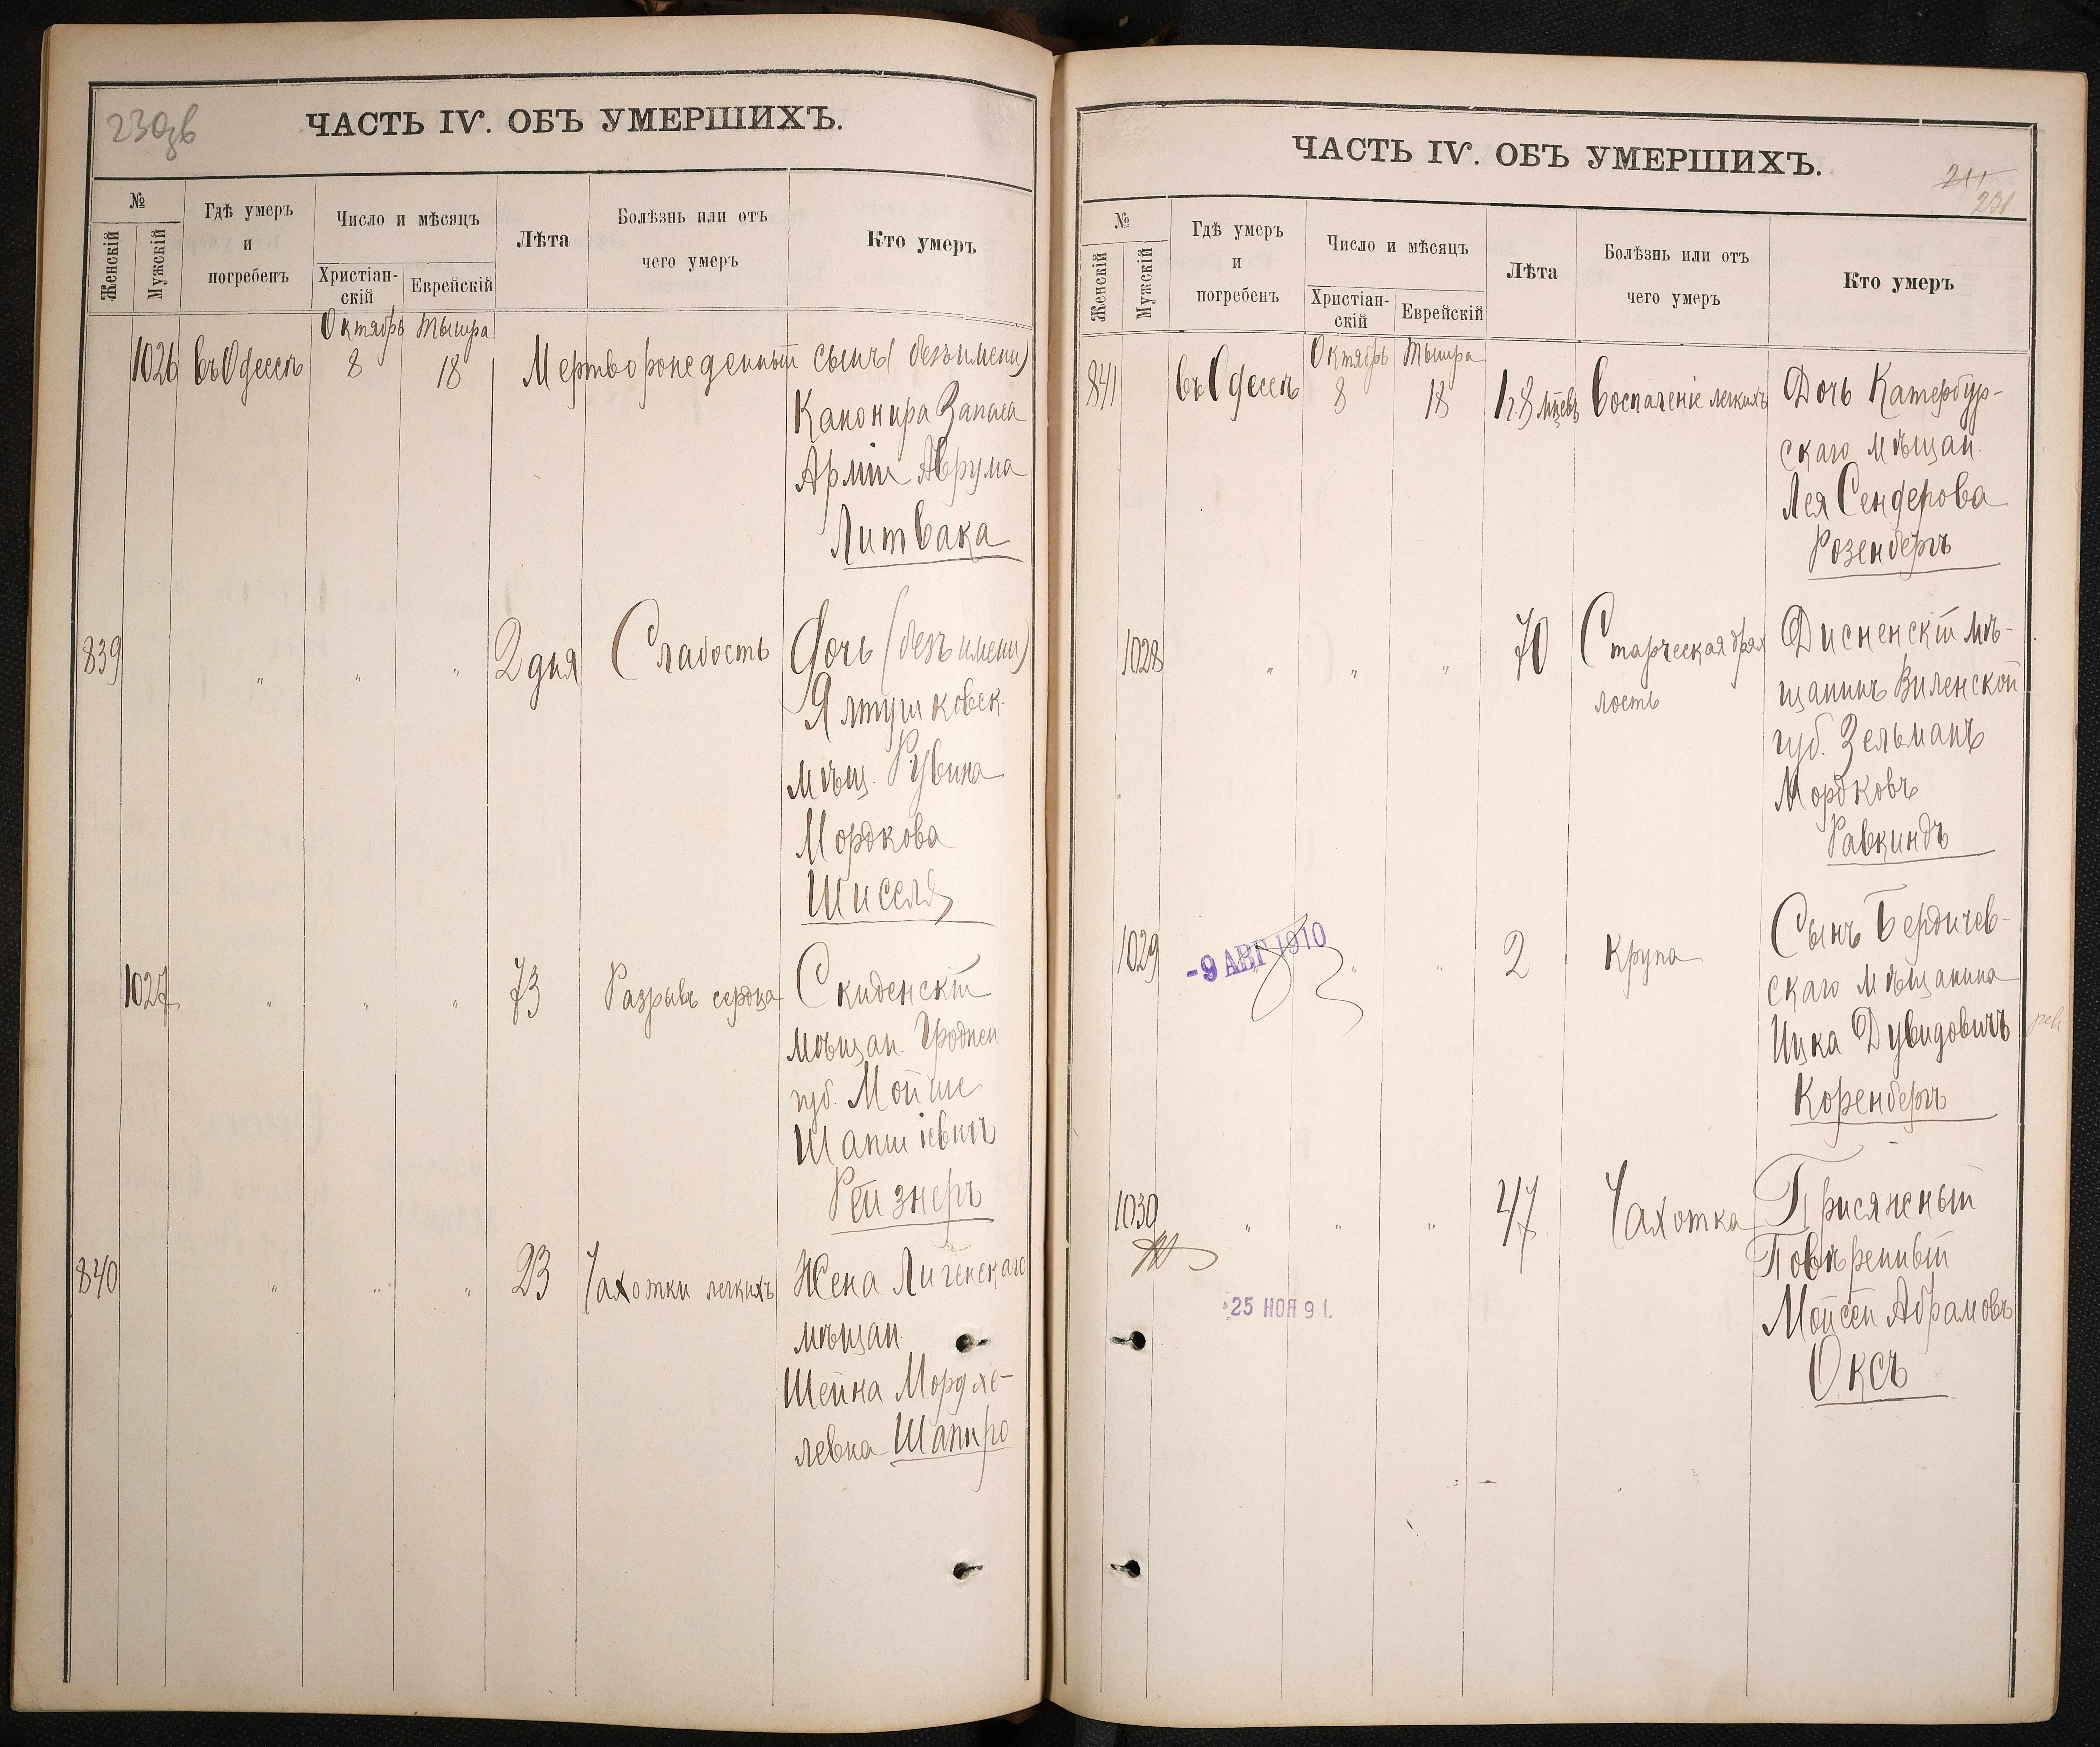 230об
ЧАСТЬ IV. ОБЪ УМЕРШИХЪ.
№
Женскій
Мужскій
Гдѣ умеръ
и
погребенъ
Число и мѣсяцъ
Христіан-
скій
Еврейскій
Лѣта
Болѣзнь или отъ
чего умеръ
Кто умеръ
Октябрь Тышра
1026 въ Одессѣ 8 18 Мертворожденный сынъ (безъ имени)
Канонира Запаса
Арміи Аврума
Литвака
839 " " " 2 дня Слабость Дочь (безъ имени)
Ялтушковск.
мѣщ. Рувина
Мордкова
1027 " " " 73 Разрывъ сердца Скиденскій
мѣщан. Гроднен
губ. Мойше
Шапшіевичъ
Рейзнеръ
840 " " " 23 Чахотки легкихъ Жена
мѣщан.
Шейна Мордхе-
левна Шапиро
ЧАСТЬ IV. ОБЪ УМЕРШИХЪ.
211
231.
№
Женскій
Мужскій
Гдѣ умеръ
и
погребенъ
Число и мѣсяцъ
Христіан-
скій
Еврейскій
Лѣта
Болѣзнь или отъ
чего умеръ
Кто умеръ
Октябрь Тышра
841 въ Одессѣ 8 18 1 г. 8 мцевъ Воспаленіе легкихъ Дочь Катербур-
скаго мѣщан.
Лея Сендерова
Розенбергъ
1028 " " " 70 Старческая дрях Дисненскій мѣ-
лость
щанинъ Виленской
губ. Зельманъ
Мордковъ
Равкиндъ
1029 " " " 2 Крупа Сынъ Бердичев-
-9 АВГ 1910
скаго мѣщанина
Ицка Дувидовичъ
Коренбергъ
1030 " " " 47 Чахотка Присяжный
Повѣренный
25 НОЯ 91.
Мойсей Абрамовъ
Оксъ